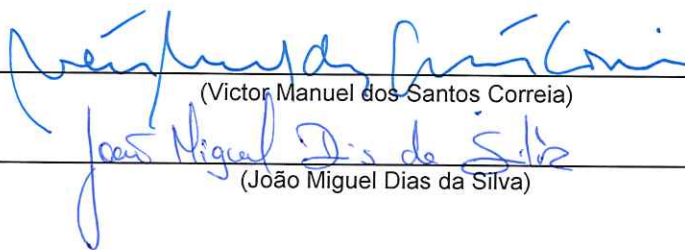 (Victor Manuel dos Santos Correia)
João Miguel Dias da Silva
(João Miguel Dias da Silva)